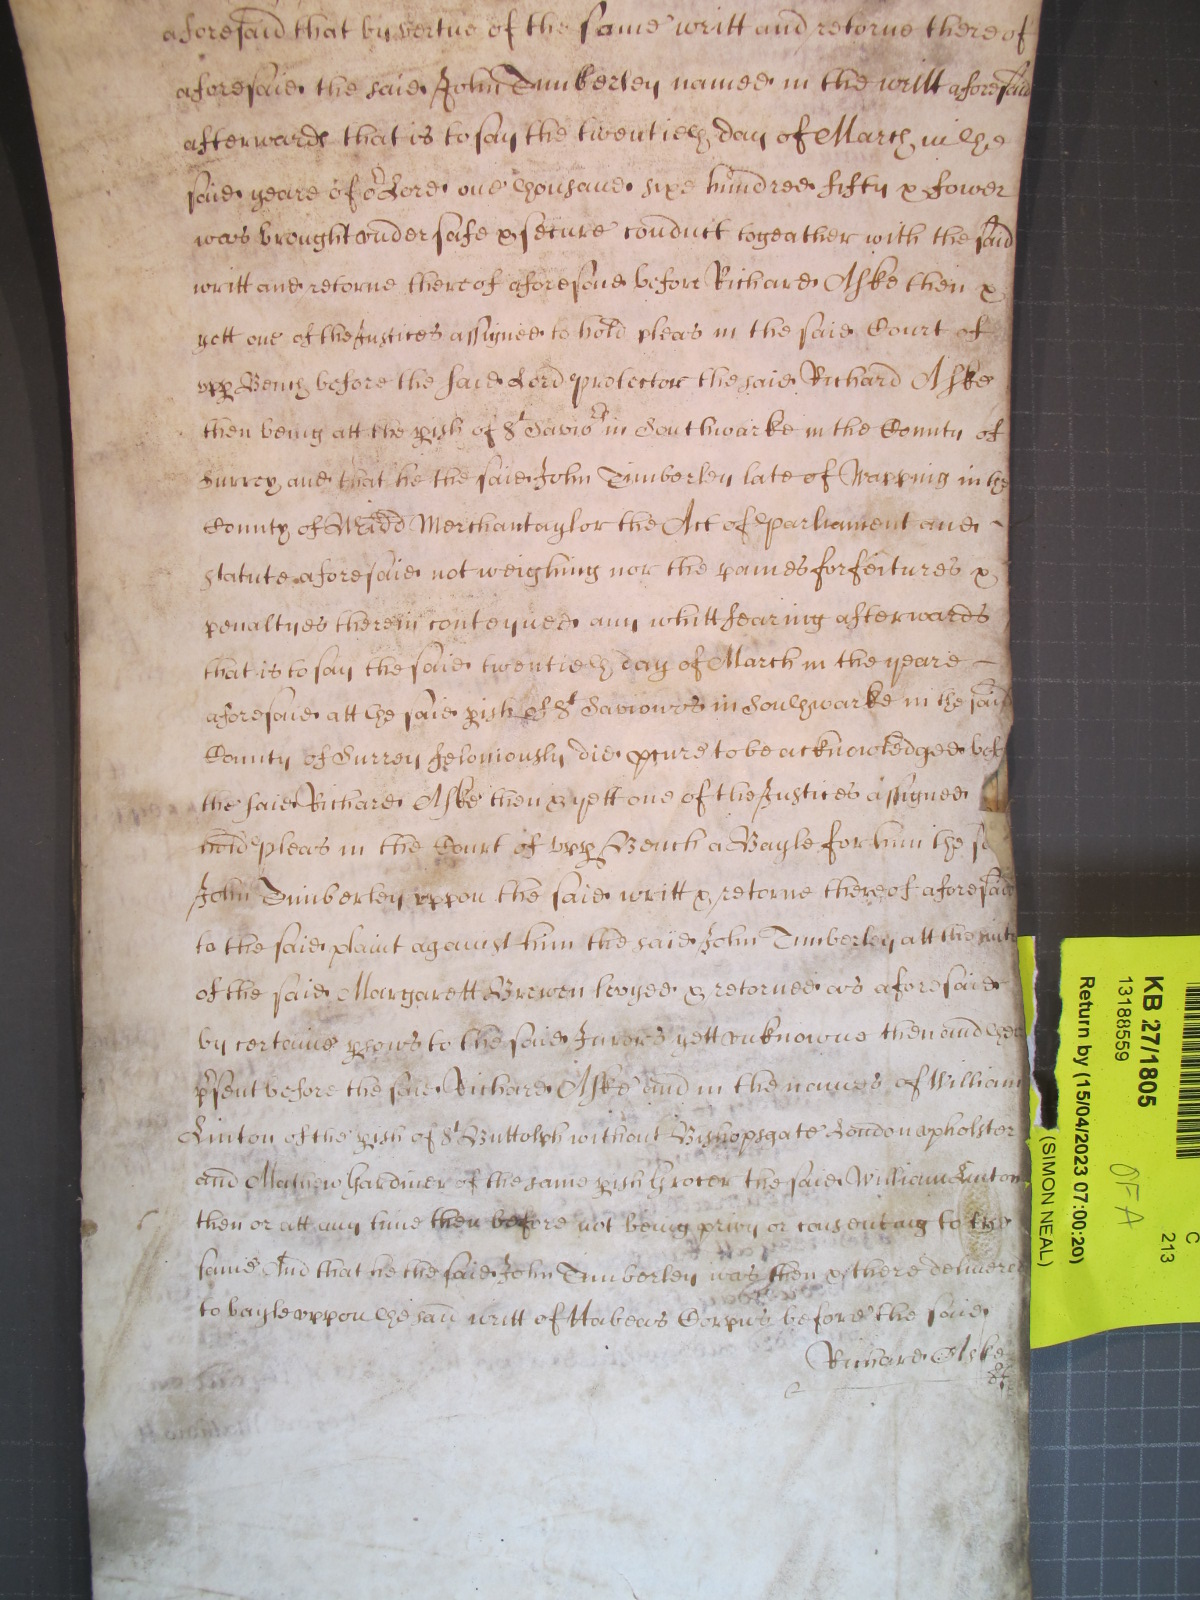 aforesaid that by vertue of the same writt and retorne thereof
aforesaid the said John Timberley named in the writt aforesaid
afterwards that is to say the twentieth day of March in the
said yeare of or Lord one thousand sixe hundred fifty & fower
was brought under safe & secure conduct togeather with the said
writt and retorne thereof aforesaid before Richard Aske then &
yett one of the Justices assigned to hold pleas in the said Court of
upp Bench before the said Lord protector the said Richard Aske
then being att the pish of St Savior in Southwarke in the County of
Surrey and that he the said John Timberley late of Wapping in the
County of Midd Merchantaylor the Act of Parliament and
statute aforesaid not weighing nor the paines forfeitures &
penaltyes therein conteyned any whitt fearing afterwards
that is to say the said twentieth day of March in the yeare
aforesaid att the said pish of St Saviours in Southwarke in the said
County of Surrey feloniously did pcure to be acknowledged bef
the said Richard Aske then & yett one of the Justices assigned
pleas in the Court of upp Bench a Bayle for him the s
John Timberley uppon the said writt & retorne thereof aforesaid
to the said plaint against him the said John Timberley att the suite
of the said Margarett Brewen levyed & retorned as aforesaid
by certaine psons to the said Jurors yett unknowne then and there
psent before the said Richard Aske and in the names of William
Linton of the pish of St Buttolph without Bishopsgate London upholster
and Mathew Gardiner of the same pish Grocer the said William Linton
then or att any time then before not being privy or consenting to the
same And that he the said John Timberley was then & there delivered
to bayle uppon the said writt of Habeas Corpus before the said
Richard Aske
KB 27/1805
13188559
Return by (15/04/2023 07:00:20)
(SIMON NEAL)
OFA
C
213